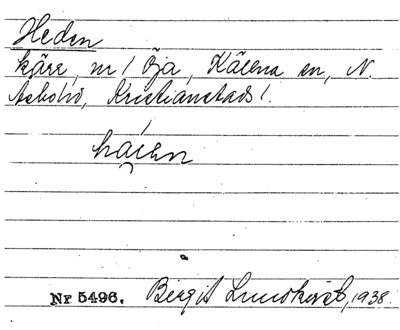 Heden
kärr, nr 1 Öja, Kälena sn, N.
Åsbo hd, Kristianstads l.
hài̯en
Nr 5496. Birgit Lundkvist, 1938.